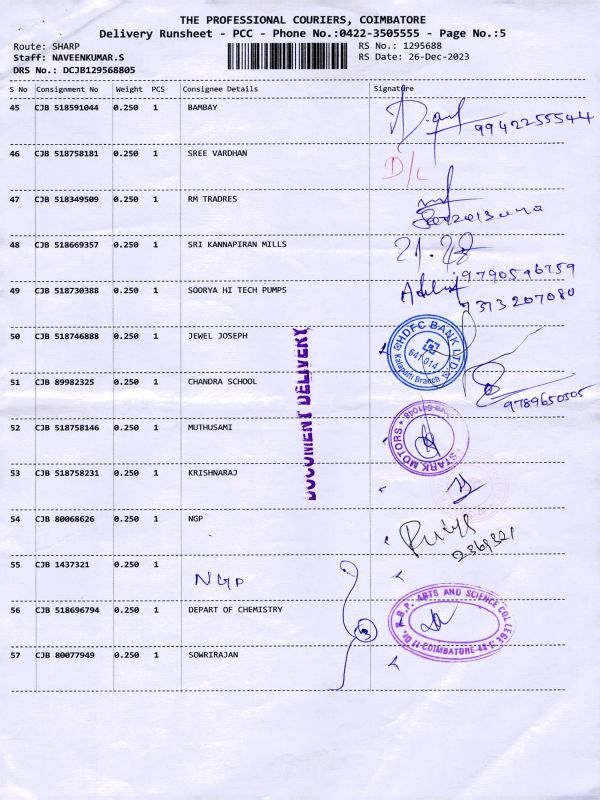 THE PROFESSIONAL COURIERS, COIMBATORE
Delivery Runsheet - PCC - Phone No.:0422-3505555 - Page No.:5
Route: SHARP RS No.: 1295688
Staff: NAVEENKUMAR.S RS Date: 26-Dec-2023
DRS No.: DCJB129568805
S No Consignment No Weight PCS Consignee Details Signature
45 CJB 518591044 0.250 1 BAMBAY
9942255544
46 CJB 518758181 0.250 1 SREE VARDHAN D/L
47 CJB 518349509 0.250 1 RM TRADRES
48 CJB 518669357 0.250 1 SRI KANNAPIRAN MILLS
49 CJB 518730388 0.250 1 SOORYA HI TECH PUMPS
7373207080
50 CJB 518746888 0.250 1 JEWEL JOSEPH
HDFC BANK LTD.
641 014
Kalapatti Branch
51 CJB 89982325 0.250 1 CHANDRA SCHOOL
9789650505
DOCUMENT DELIVERY
52 CJB 518758146 0.250 1 MUTHUSAMI
STARK MOTORS
53 CJB 518758231 0.250 1 KRISHNARAJ
54 CJB 80068626 0.250 1 NGP
55 CJB 1437321 0.250 1 NGP
56 CJB 518696794 0.250 1 DEPART OF CHEMISTRY
ARTS AND SCIENCE COLLEGE
COIMBATORE-48
57 CJB 80077949 0.250 1 SOWRIRAJAN